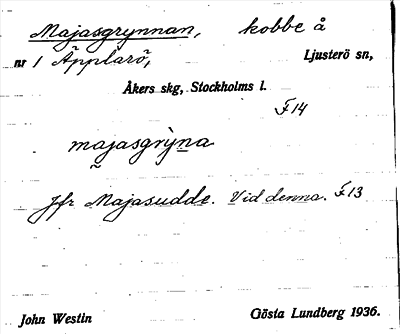 Majasgrynnan, kobbe å
nr 1 Äpplarö, Ljusterö sn,
Åkers skg, Stockholms l.
F14
majasgrỳna
Jfr Majasudde. Vid denna. F13
John Westin Gösta Lundberg 1936.